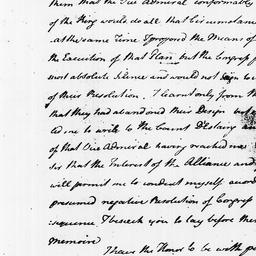 them that the Vice Admiral conformably
of the King would do all that Circumstance
at the same Time I proposed the Means of
the Execution of that Plan but the Congress
most absolute Silence and would not
of their Resolution. I learnt only from
that they had abandoned their Design but
ed me to write to the Count D'Estaing an
of that Vice Admiral having reached me
Sir that the Interest of the Alliance and
will permit me to conduct myself accord
presumed negative Resolution of Congress
:sequence. I beseech you to lay before the
Memoire
I have the Honor to be with